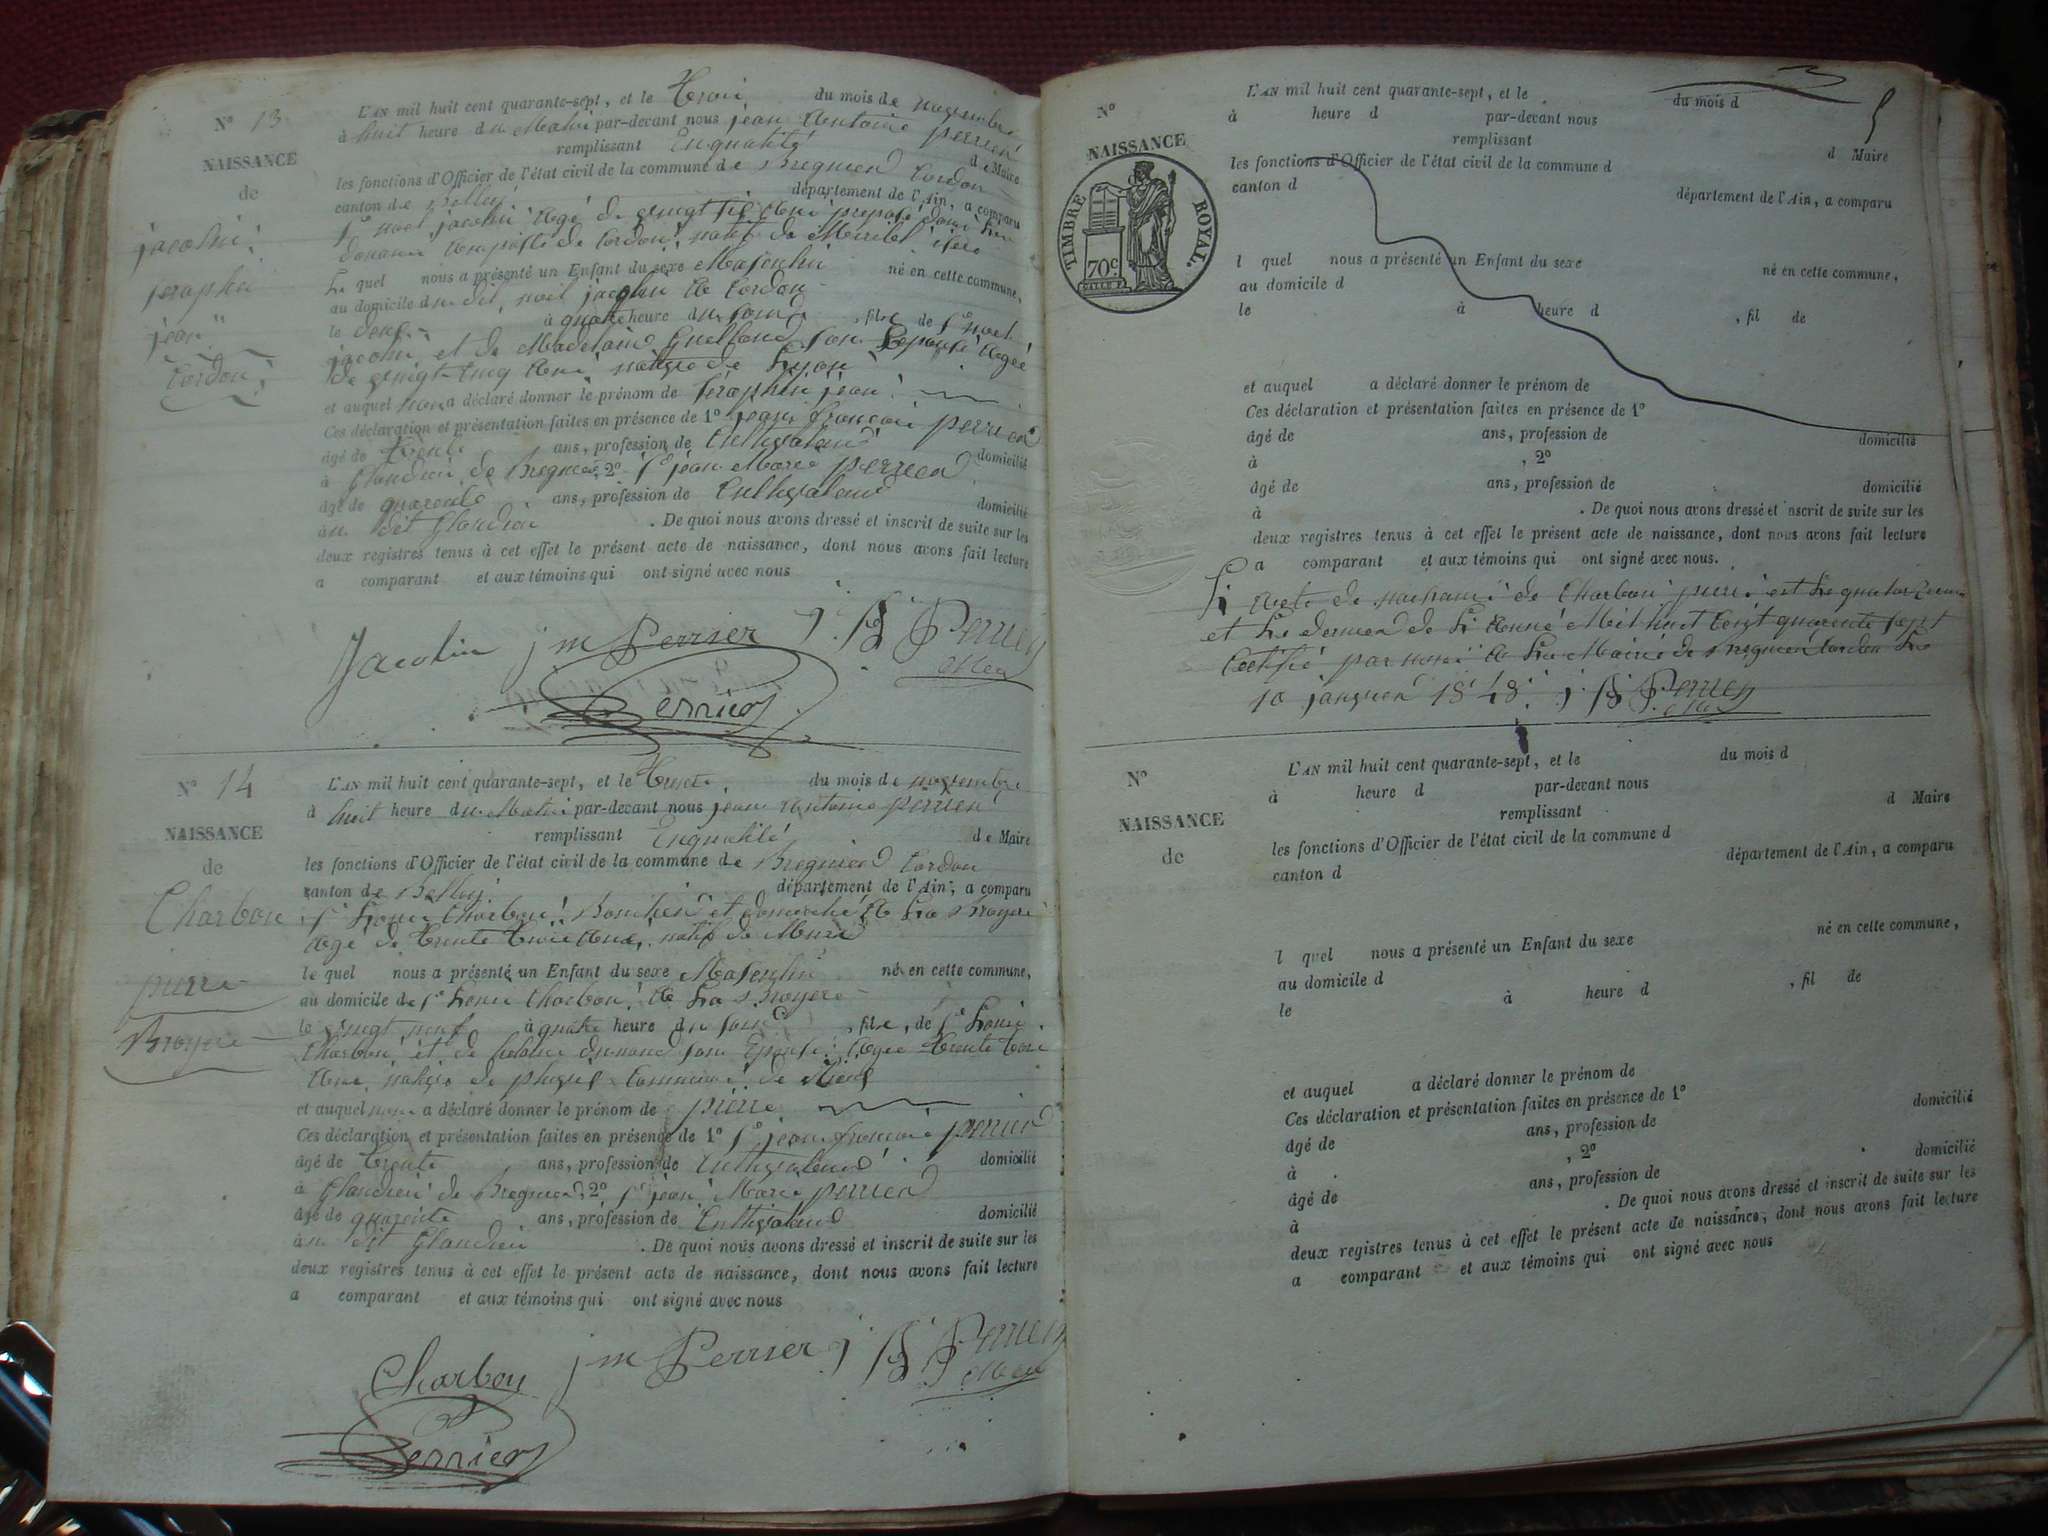 N° 13
NAISSANCE
de
jacolin
seraphin
jean
Cordon
L'AN mil huit cent quarante-sept, et le trois du mois de novembre
à huit heure du Matin par-devant nous jean Antoine perrier
remplissant En qualité de Maire
les fonctions d'Officier de l'état civil de la commune de Bregnier Cordon
canton de Belley département de l'Ain, a comparu
Sr noel jacolin Agé de vingt six Ans préposé dans les
douanes Au poste de Cordon, natif de
Le quel nous a présenté un Enfant du sexe Masculin né en cette commune,
au domicile du dit noel jacolin A Cordon
le deux à quatre heure du soir, fils de Sr noel
jacolin et de Madelaine son Epouse Agée
de vingt cinq Ans native de Lyon
et auquel nous a déclaré donner le prénom de Séraphin jean
Ces déclaration et présentation faites en présence de 1° jean françois perrier
âgé de trente ans, profession de Cultivateur domicilié
à Glandieu de Bregnier, 2° Sr jean Marie perrier
âgé de quarente ans, profession de Cultivateur domicilié
au dit Glandieu. De quoi nous avons dressé et inscrit de suite sur les
deux registres tenus à cet effet le présent acte de naissance, dont nous avons fait lecture
a comparant et aux témoins qui ont signé avec nous
Jacolin j m Perrier j. Perrier
Perrier
N° 14
NAISSANCE
de
Charbon
pierre
Broyere
L'AN mil huit cent quarante-sept, et le trente du mois de novembre
à huit heure du Matin par-devant nous jean Antoine perrier
remplissant En qualité de Maire
les fonctions d'Officier de l'état civil de la commune de Bregnier Cordon
canton de Belley département de l'Ain, a comparu
Sr Louis Charbon, et domicilié A La Broyere
Agé de trente trois Ans, natif de
le quel nous a présenté un Enfant du sexe Masculin né en cette commune,
au domicile de Sr Louis Charbon, A La Broyere
le vingt neuf à quatre heure du soir, fils, de Sr Louis
Charbon et de son Epouse Agée trente trois
Ans, native de Commune de
et auquel nous a déclaré donner le prénom de pierre
Ces déclaration et présentation faites en présence de 1° Sr jean françois perrier
âgé de trente ans, profession de Cultivateur domicilié
à Glandieu de Bregnier, 2° Sr jean Marie perrier
âgé de quarente ans, profession de Cultivateur domicilié
au dit Glandieu. De quoi nous avons dressé et inscrit de suite sur les
deux registres tenus à cet effet le présent acte de naissance, dont nous avons fait lecture
a comparant et aux témoins qui ont signé avec nous
Charbon j m Perrier j Perrier
Perrier
5
N°
NAISSANCE
TIMBRE ROYAL.
70c
L'AN mil huit cent quarante-sept, et le du mois d
à heure d par-devant nous
remplissant d Maire
les fonctions d'Officier de l'état civil de la commune d
canton d département de l'Ain, a comparu
l quel nous a présenté un Enfant du sexe né en cette commune,
au domicile d
le à heure d, fil de
et auquel a déclaré donner le prénom de
Ces déclaration et présentation faites en présence de 1°
âgé de ans, profession de domicilié
à, 2°
âgé de ans, profession de domicilié
à. De quoi nous avons dressé et inscrit de suite sur les
deux registres tenus à cet effet le présent acte de naissance, dont nous avons fait lecture
a comparant et aux témoins qui ont signé avec nous.
Acte de naissance de Charbon pierre est Le quatorzieme
et Le dernier de Année Mil huit Cent quarente sept
Certifié par nous Maire de Bregnier Cordon Le
10 janvier 1848. j Perrier
N°
NAISSANCE
de
L'AN mil huit cent quarante-sept, et le du mois d
à heure d par-devant nous
remplissant d Maire
les fonctions d'Officier de l'état civil de la commune d
canton d département de l'Ain, a comparu
l quel nous a présenté un Enfant du sexe né en cette commune,
au domicile d
le à heure d, fil de
et auquel a déclaré donner le prénom de
Ces déclaration et présentation faites en présence de 1°
âgé de ans, profession de domicilié
à, 2°
âgé de ans, profession de domicilié
à. De quoi nous avons dressé et inscrit de suite sur les
deux registres tenus à cet effet le présent acte de naissance, dont nous avons fait lecture
a comparant et aux témoins qui ont signé avec nous